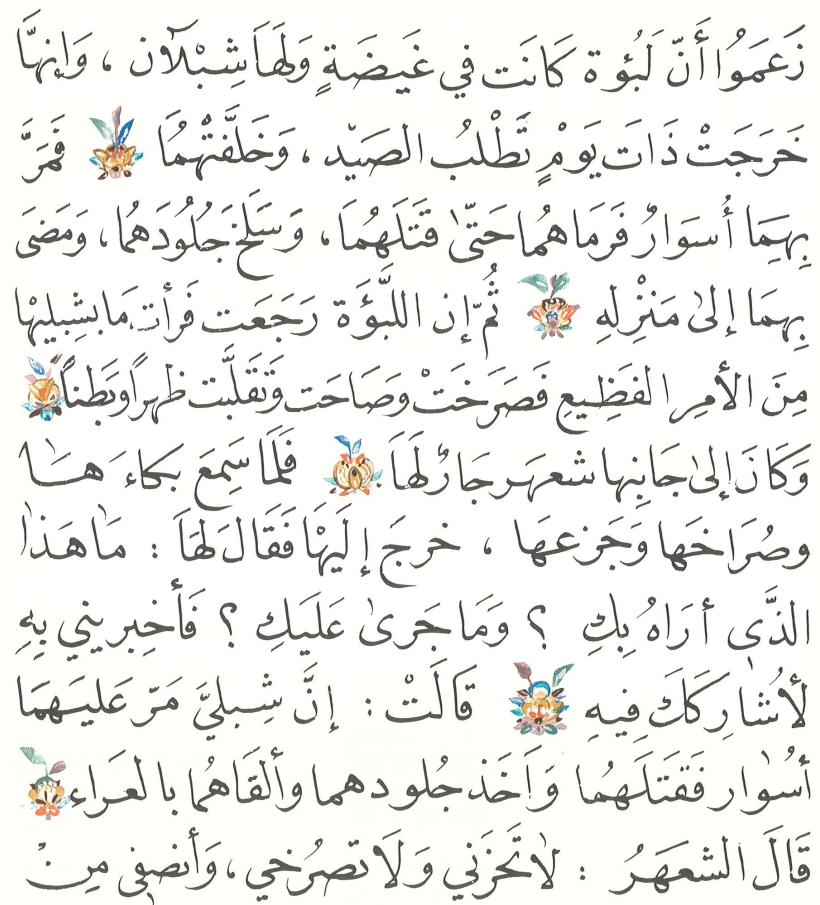 زَعَمَوُا أَنَّ لَبُؤة كَانَت في غَيضَةٍ وَلَهَا شِبْلاَن ، وَإنهَّا
خَرَجَتْ ذَاتَ يَوْمٍ تَطْلُبُ الصَيْد ، وَخَلَّفَتْهُمَا فَمَرَّ
بِهِمَا أُسوَارٌ فَرَمَاهُما حَتّىٰ قَتَلَهُمَا، وَسَلَخ جُلُودَهُما، وَمَضىَ
بِهِمَا إلىٰ مَنْزِلهِ ثُمّ إن اللَّبؤَة رَجَعَت فَرأت مَا بشِبليهْا
مِنَ الأمِر الفَظِيعِ فَصَرَخَتْ وَصَاحَت وَتَقَلَّبَت ظهراً وَبَطناً
وَكَانَ إلىٰ جَانِبها شعهَر جَارٌ لَهَا فَلَمَا سَمِعَ بكاءَ هَا
وصُرَاخَها وَجَزعهَا ، خرجَ إلَيهْا فَقَالَ لَهَا : مَا هَذا
الذَّى أرَاهُ بِكِ ؟ وَمَا جَرىٰ عَلَيكِ ؟ فَأخبِريني بِهِ
لأشارِكَكَ فِيهِ قَالَتْ : إنَّ شِبليَّ مَرّ عَليَهمَا
أسُوار فَقَتَلَهُما وَاَخَذ جُلودهما وألقَاهُما بالعرَاء
قَالَ الشعهَرُ : لاَ تَحَزَني وَلاَ تصرُخي ، وَأنصِفى مِنْ